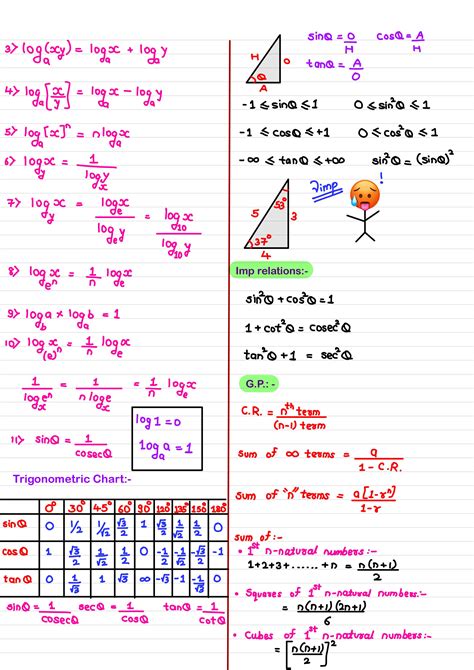 3) logₐ(xy) = logₐx + logₐy
4) logₐ[x/y] = logₐx - logₐy
5) logₐ[x]ⁿ = n logₐx
6) log_y x = 1/log_x y
7) log_y x = logₑx/logₑy = log₁₀x/log₁₀y
8) log_eⁿ x = 1/n logₑx
9) log_b a × logₐ b = 1
10) log_(e)ⁿ x = 1/n logₑx
1/log_x eⁿ = 1/n log_x e = 1/n logₑx
log 1 = 0
logₐ a = 1
11) sinθ = 1/cosecθ
Trigonometric Chart:-
0° 30° 45° 60° 90° 120° 135° 150° 180°
sinθ 0 1/2 1/√2 √3/2 1 √3/2 1/√2 1/2 0
cosθ 1 √3/2 1/√2 1/2 0 -1/2 -1/√2 -√3/2 -1
tanθ 0 1/√3 1 √3 ∞ -√3 -1 -1/√3 0
sinθ = 1/cosecθ secθ = 1/cosθ tanθ = 1/cotθ
H O
θ
A
sinθ = O/H cosθ = A/H
tanθ = A/O
-1 ≤ sinθ ≤ 1 0 ≤ sin²θ ≤ 1
-1 ≤ cosθ ≤ +1 0 ≤ cos²θ ≤ 1
-∞ ≤ tanθ ≤ +∞ sin²θ = (sinθ)²
53°
5 3
37°
4
imp !
Imp relations:-
sin²θ + cos²θ = 1
1 + cot²θ = cosec²θ
tan²θ + 1 = sec²θ
G.P.: -
C.R. = nᵗʰ term/(n-1) term
sum of ∞ terms = a/1 - C.R.
sum of "n" terms = a[1-rⁿ]/1-r
sum of :-
• 1ˢᵗ n-natural numbers :-
1+2+3+......+n = n(n+1)/2
• Squares of 1ˢᵗ n-natural numbers:-
= n(n+1)(2n+1)/6
• Cubes of 1ˢᵗ n-natural numbers:-
= [n(n+1)/2]²